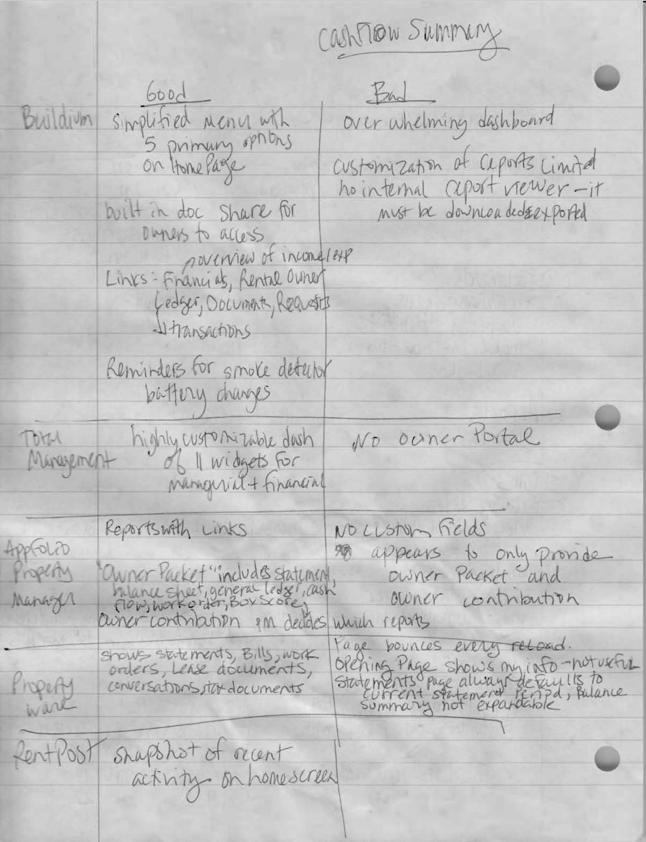 Cashflow Summary
Good Bad
Buildium simplified menu with over whelming dashboard
5 primary options
on HomePage customization of reports limited
no internal report viewer - it
built in doc share for must be downloaded & exported
owners to access
overview of income/exp
Links: Financials, Rental Owner
Ledger, Documents, Requests
transactions
Reminders for smoke detector
battery changes
Total highly customizable dash No owner Portal
Management of 11 widgets for
managerial + financial
Reports with Links No custom fields
AppFolio appears to only provide
Property "Owner Packet" includes statement, owner Packet and
Manager balance sheet, general ledger, cash owner contribution
flow, work order, Box Score,
Owner contribution PM decides which reports
Page bounces every reload.
shows statements, Bills, work Opening Page shows my info - not useful
orders, Lease documents, statements page always defaults to
Property conversations, tax documents current statement period, Balance
ware summary not expandable
RentPost snapshot of recent
activity on homescreen